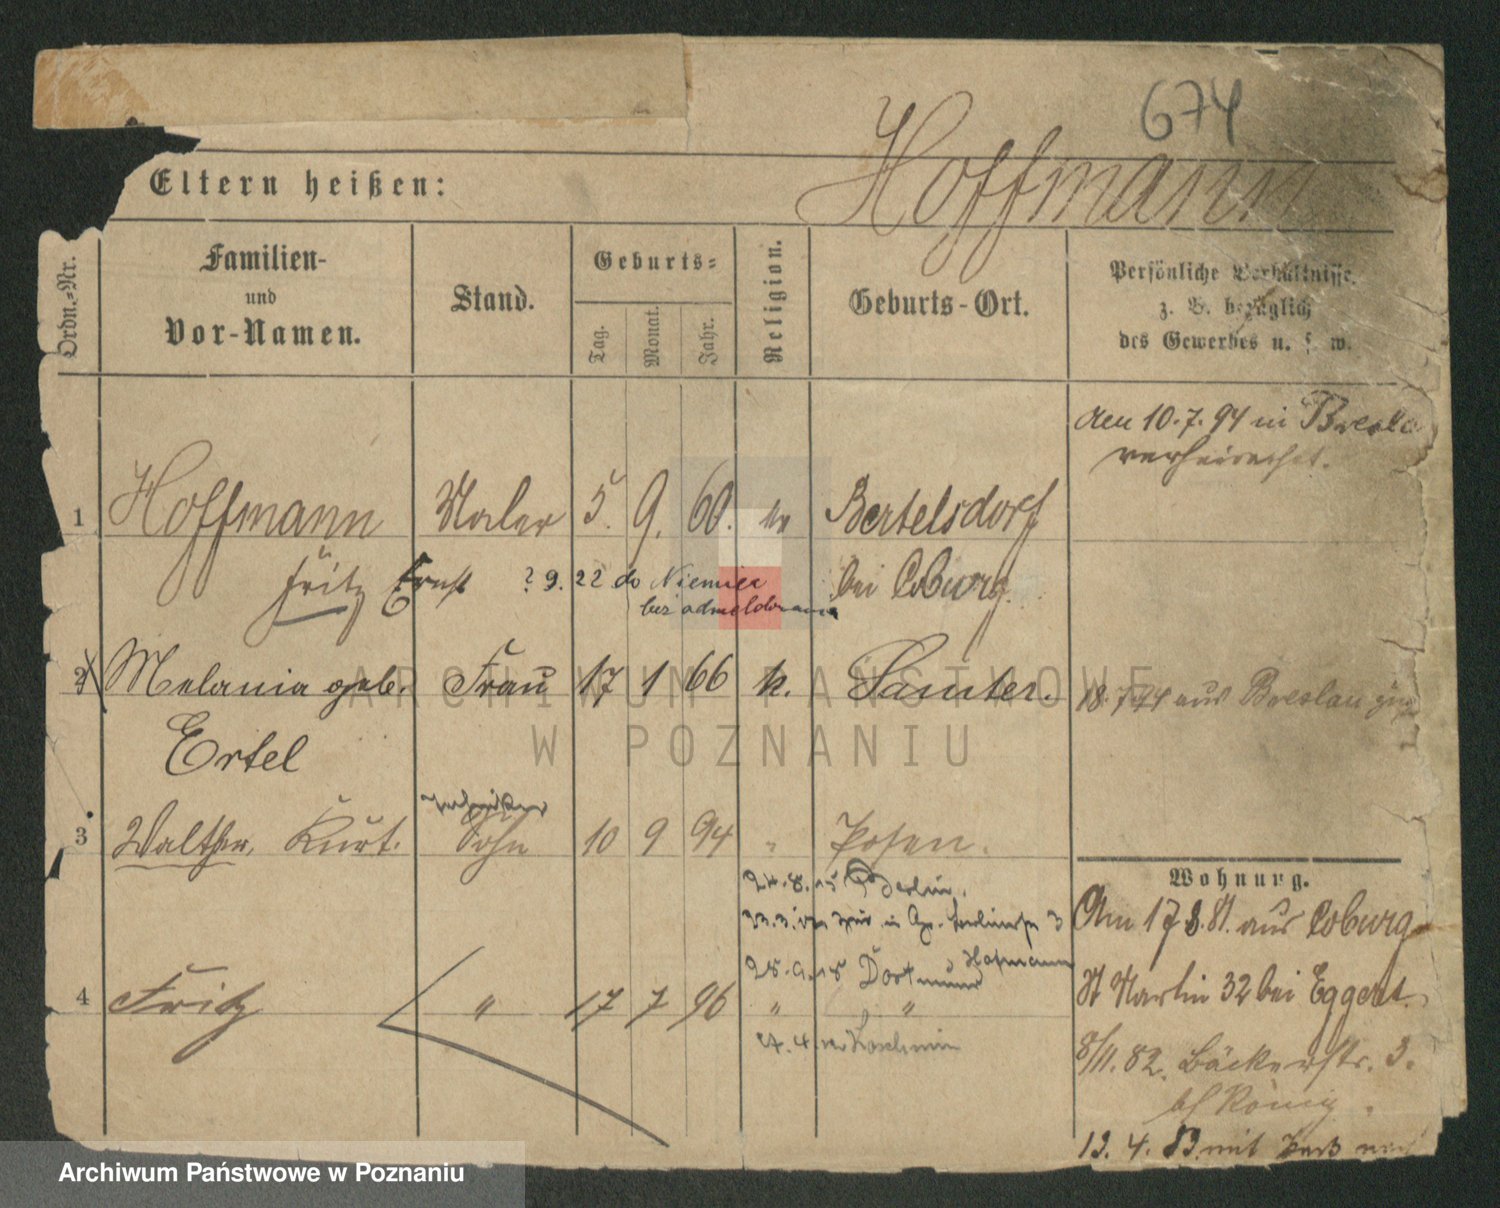 674
Eltern heißen:
Hoffmann
Ordn.-Nr.
Familien-
und
Vor-Namen.
Stand.
Geburts-
Tag.
Monat.
Jahr.
Religion.
Geburts-Ort.
Persönliche Verhältnisse,
z. B. bezüglich
des Gewerbes u. s. w.
den 10.7.94 in Breslau
verheirathet.
1 Hoffmann Maler 5. 9. 60. ev Bertelsdorf
Fritz Ernst ? 9. 22 do Niemiec bei Coburg.
bez odmeldowania
2 Melania geb. Frau 17 1 66 k. Samter. 18.7.94 aus Breslau
Ertel
Techniker
3 Walther, Kurt. Sohn 10 9 94 " Posen.
24.8.15 Berlin.
Wohnung.
Am 17 3. 81. aus Coburg
Hofmann
28.9.18 Dortmund
St Martin 32 bei Eggert.
4 Fritz " 17 7 96 " "
Koschmin
8/11. 82. Bäckerstr. 3.
bei König.
13. 4. 83 mit Paß nach
ARCHIWUM PAŃSTWOWE
W POZNANIU
Archiwum Państwowe w Poznaniu